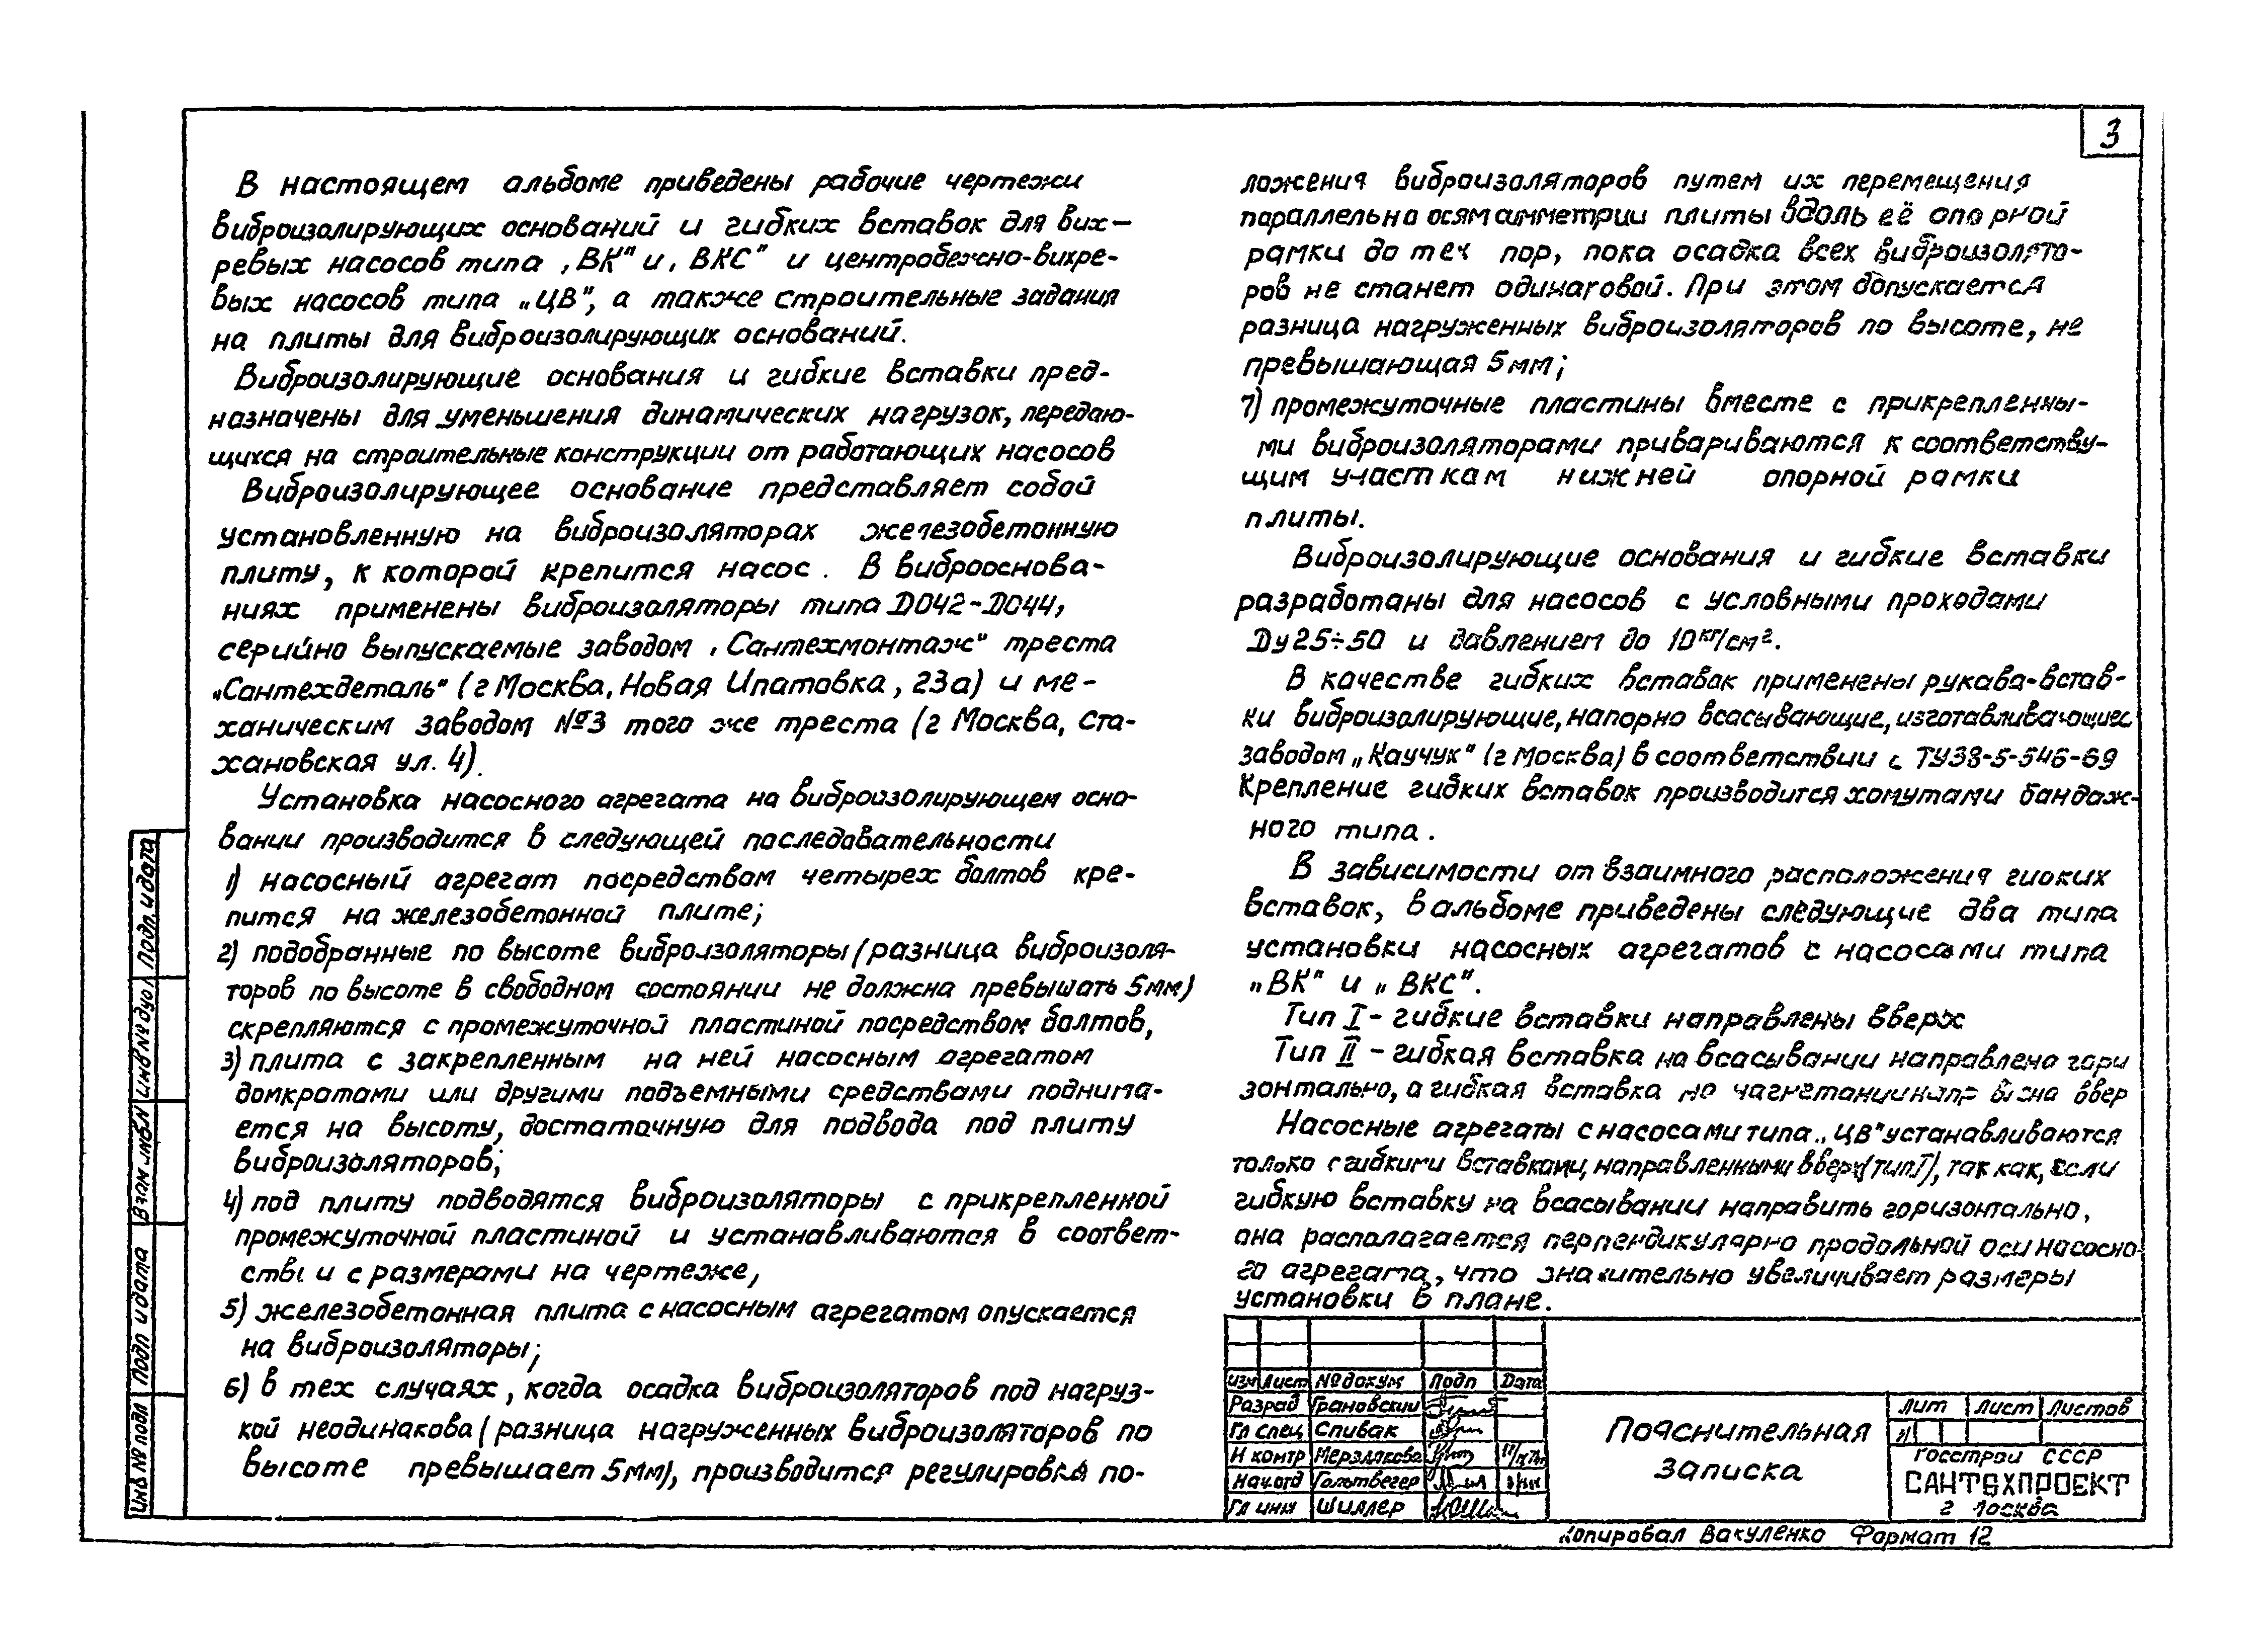 3
В настоящем альбоме приведены рабочие чертежи
виброизолирующих оснований и гибких вставок для вих-
ревых насосов типа „ВК" и „ВКС" и центробежно-вихре-
вых насосов типа „ЦВ", а также строительные задания
на плиты для виброизолирующих оснований.
Виброизолирующие основания и гибкие вставки пред-
назначены для уменьшения динамических нагрузок, передаю-
щихся на строительные конструкции от работающих насосов
Виброизолирующее основание представляет собой
установленную на виброизоляторах железобетонную
плиту, к которой крепится насос. В виброоснова-
ниях применены виброизоляторы типа ДО42-ДО44,
серийно выпускаемые заводом „Сантехмонтаж" треста
„Сантехдеталь" (г Москва, Новая Ипатовка, 23а) и ме-
ханическим заводом №3 того же треста (г Москва, Ста-
хановская ул. 4).
Установка насосного агрегата на виброизолирующем осно-
вании производится в следующей последовательности
1) насосный агрегат посредством четырех болтов кре-
пится на железобетонной плите;
2) подобранные по высоте виброизоляторы (разница виброизоля-
торов по высоте в свободном состоянии не должна превышать 5мм)
скрепляются с промежуточной пластиной посредством болтов,
3) плита с закрепленным на ней насосным агрегатом
домкратами или другими подъемными средствами поднима-
ется на высоту, достаточную для подвода под плиту
виброизоляторов;
4) под плиту подводятся виброизоляторы с прикрепленной
промежуточной пластиной и устанавливаются в соответ-
ствии с размерами на чертеже,
5) железобетонная плита с насосным агрегатом опускается
на виброизоляторы;
6) в тех случаях, когда осадка виброизоляторов под нагруз-
кой неодинакова (разница нагруженных виброизоляторов по
высоте превышает 5мм), производится регулировка по-
ложения виброизоляторов путем их перемещения
параллельно осям симметрии плиты вдоль её опорной
рамки до тех пор, пока осадка всех виброизолято-
ров не станет одинаковой. При этом допускается
разница нагруженных виброизоляторов по высоте, не
превышающая 5мм;
7) промежуточные пластины вместе с прикрепленны-
ми виброизоляторами привариваются к соответству-
щим участкам нижней опорной рамки
плиты.
Виброизолирующие основания и гибкие вставки
разработаны для насосов с условными проходами
Ду 25÷50 и давлением до 10 кг/см².
В качестве гибких вставок применены рукава-встав-
ки виброизолирующие, напорно всасывающие, изготавливающиес
заводом „Каучук" (г Москва) в соответствии с ТУ38-5-546-69
Крепление гибких вставок производится хомутами бандаж-
ного типа.
В зависимости от взаимного расположения гибких
вставок, в альбоме приведены следующие два типа
установки насосных агрегатов с насосами типа
„ВК" и „ВКС".
Тип I - гибкие вставки направлены вверх
Тип II - гибкая вставка на всасывании направлена гори
зонтально, а гибкая вставка на нагнетании направлена ввер
Насосные агрегаты с насосами типа „ЦВ" устанавливаются
только с гибкими вставками, направленными вверх (тип I), так как, если
гибкую вставку на всасывании направить горизонтально,
она располагается перпендикулярно продольной оси насосно-
го агрегата, что значительно увеличивает размеры
установки в плане.
Изм Лист № докум Подп Дата
Разраб Грановский
Гл спец Спивак
Н контр Мерзлякова
Нач отд Гольтвегер
Гл инж Шиллер
Пояснительная
записка
Лит Лист Листов
И
Госстрой СССР
САНТЕХПРОЕКТ
г Москва
Копировал Вакуленко Формат 12
Подп. и дата
Инв № дубл
Взам инв №
Подп и дата
Инв № подл